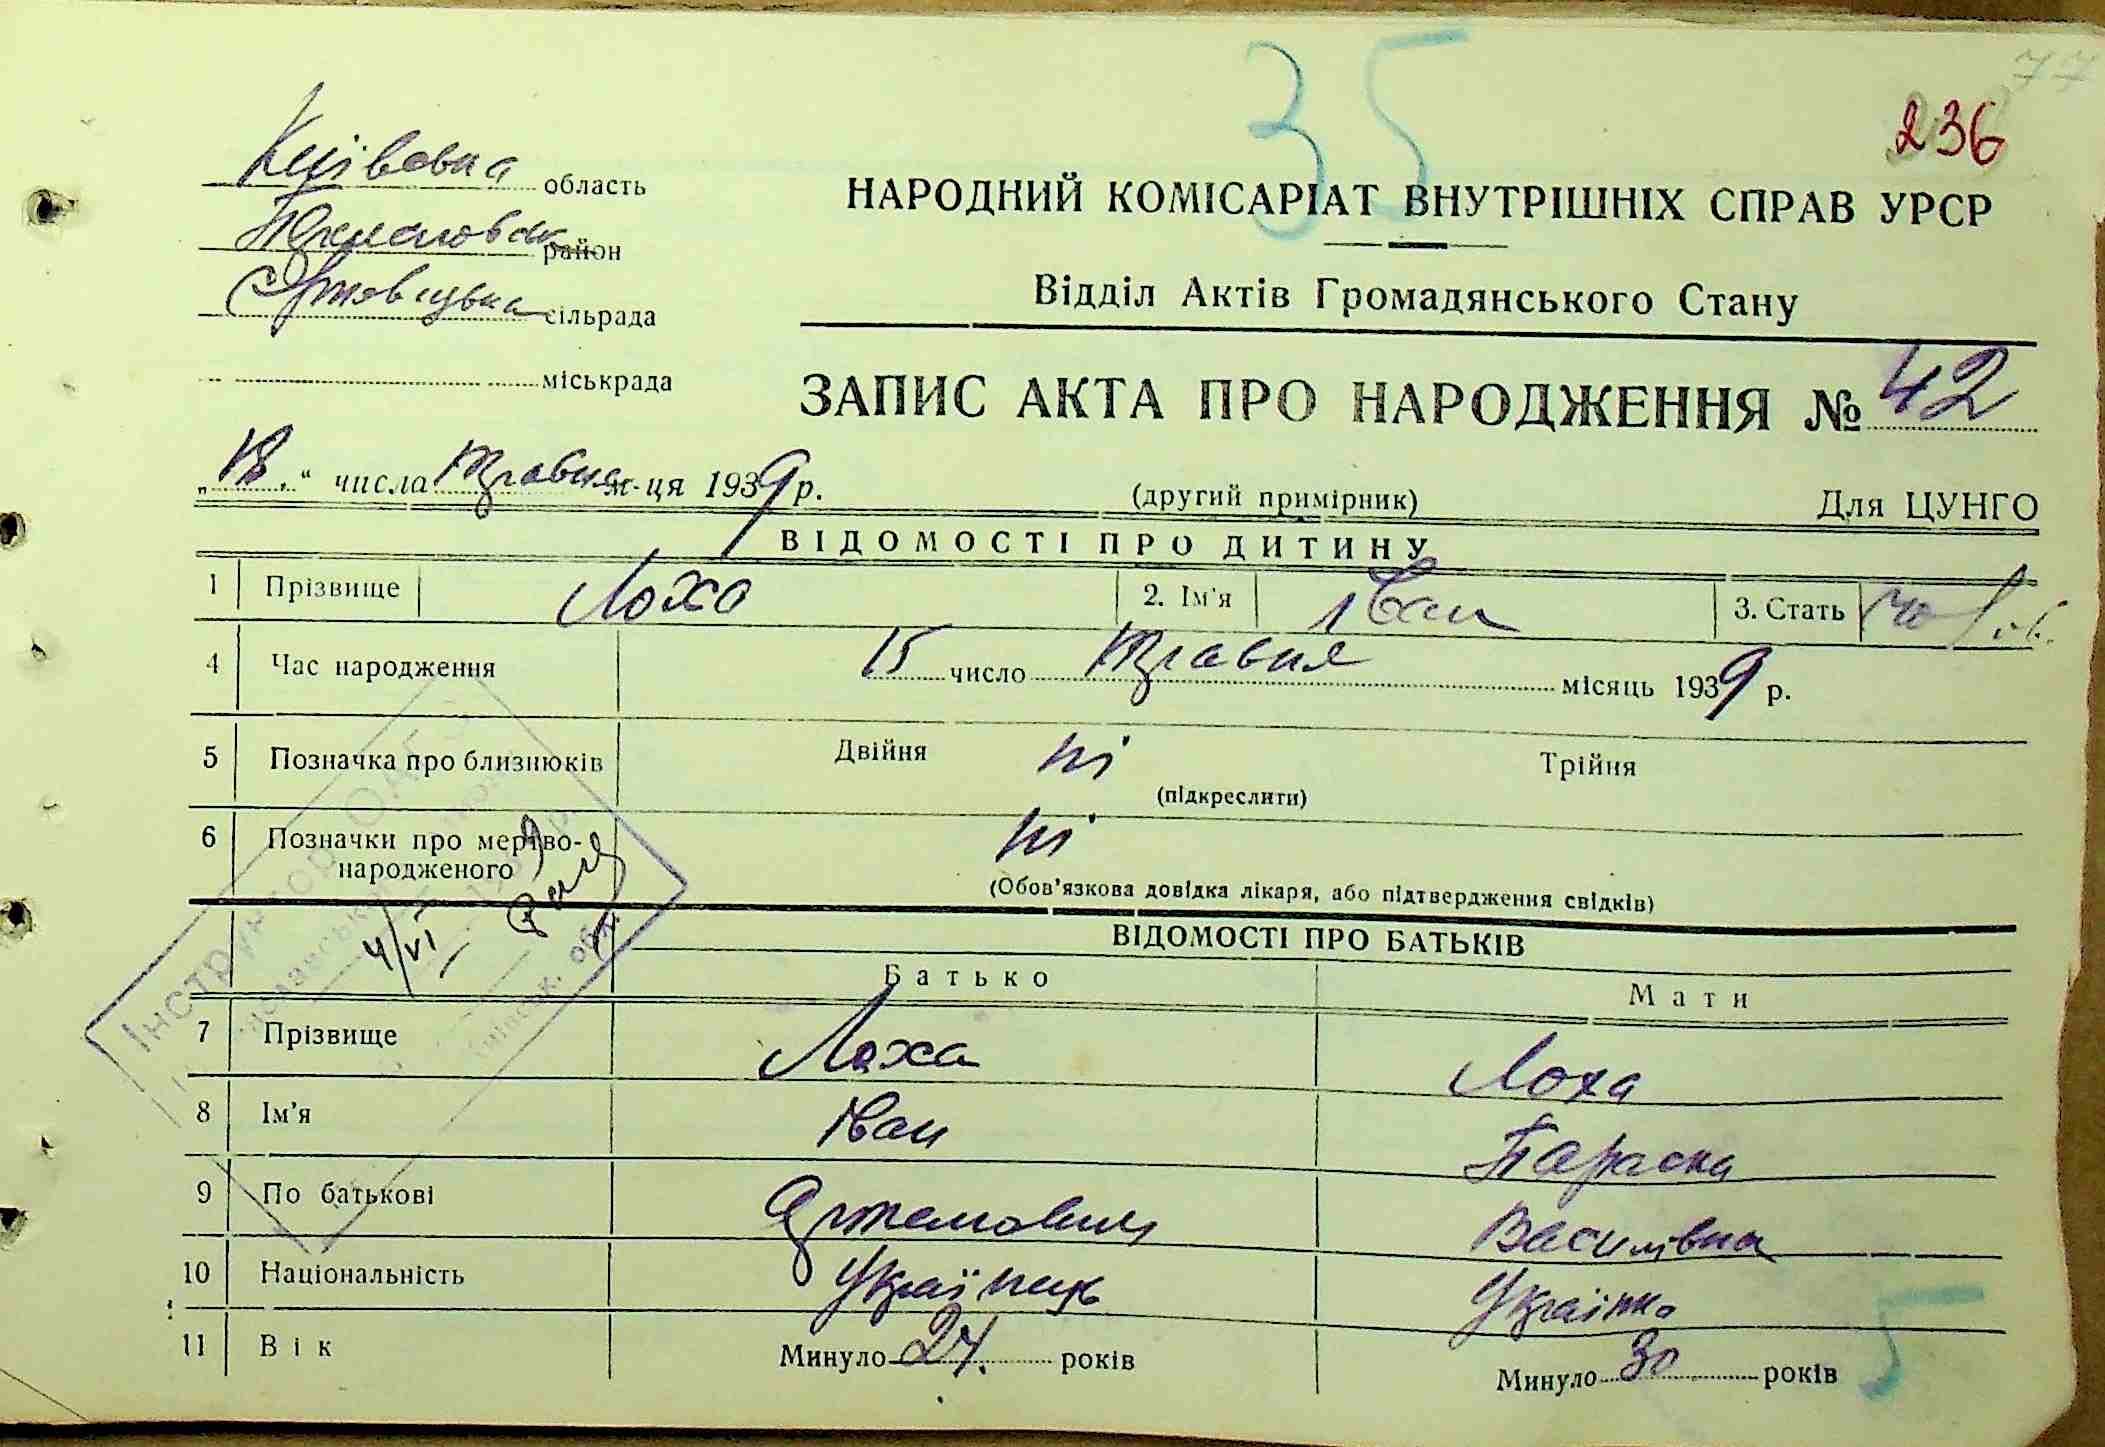 35
77
236
Київська область
район
сільрада
міськрада
НАРОДНИЙ КОМІСАРІАТ ВНУТРІШНІХ СПРАВ УРСР
Відділ Актів Громадянського Стану
ЗАПИС АКТА ПРО НАРОДЖЕННЯ № 42
„18.“ числа травня м-ця 1939 р.
(другий примірник)
Для ЦУНГО
ВІДОМОСТІ ПРО ДИТИНУ
1 Прізвище Лоха 2. Ім'я Іван 3. Стать чол.
4 Час народження 15 число травня місяць 1939 р.
5 Позначка про близнюків Двійня ні Трійня
(підкреслити)
6 Позначки про мертво-народженого ні
(Обов'язкова довідка лікаря, або підтвердження свідків)
Інструктор ОАГС
4/VI
ВІДОМОСТІ ПРО БАТЬКІВ
Батько Мати
7 Прізвище Лоха Лоха
8 Ім'я Іван Параска
9 По батькові Артемович Василівна
10 Національність Українець Українка
11 Вік Минуло 24. років Минуло 30 років
5